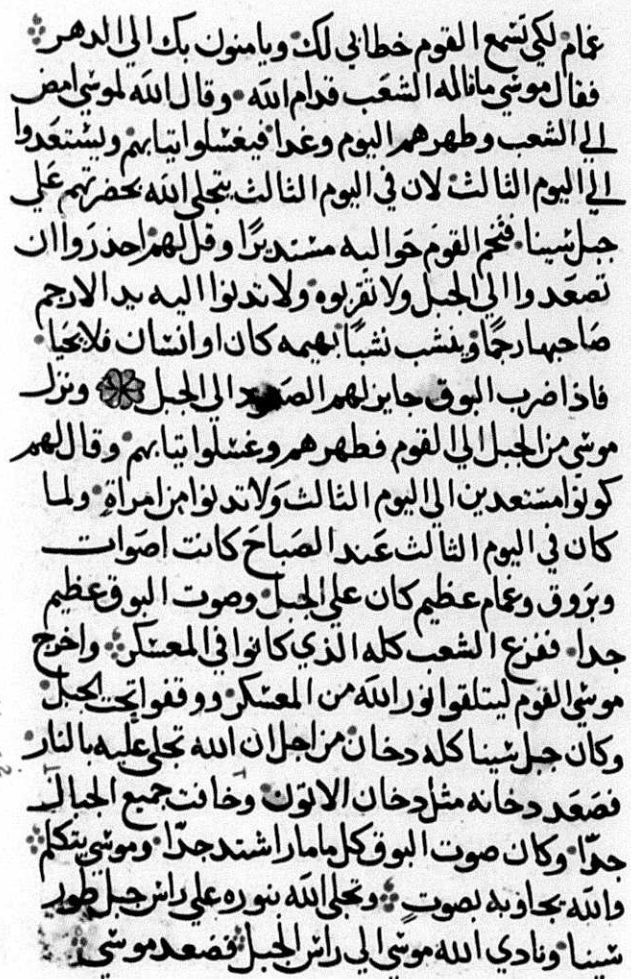 غمام لكي تسمع القوم خطابي لك ويامنون بك الي الدهر
فقال موسي ما قاله الشعب قدام الله وقال الله لموسي امض
الي الشعب وطهرهم اليوم وغدا فيغسلوا تيابهم ويستعدوا
الي اليوم الثالث لان في اليوم الثالث يتجلي الله بحضرتهم علي
جبل سينا فنخم القوم حواليه مستديرًا وقل لهم احذروا ان
تصعدوا الي الجبل ولا تقربوه ولا تدنوا اليه يدا لا رجم
صاحبها رجمًا وينشب نشبًا بهيمه كان او انسان فلا يحيا
فاذا ضرب البوق جايز لهم الصعود الي الجبل ونزل
موسي من الجبل الي القوم فطهرهم وغسلوا تيابهم وقال لهم
كونوا مستعدين الي اليوم الثالث ولا تدنوا من امراة ولما
كان في اليوم الثالث عند الصباح كانت اصوات
وبروق وغمام عظيم كان علي الجبل وصوت البوق عظيم
جدا ففزع الشعب كله الذي كانوا في المعسكر واخرج
موسي القوم ليتلقوا نور الله من المعسكر ووقفوا تحت الجبل
وكان جبل سينا كله دخان من اجل ان الله تجلي عليه بالنار
فصعد دخانه مثل دخان الاتون وخافت جميع الجبال
جدّا وكان صوت البوق كل ما مار اشتد جدّا وموسي يتكلم
والله يجاوبه بصوتٍ وتجلي الله بنوره علي راس جبل طور
سينا ونادي الله موسي الي راس الجبل فصعد موسي